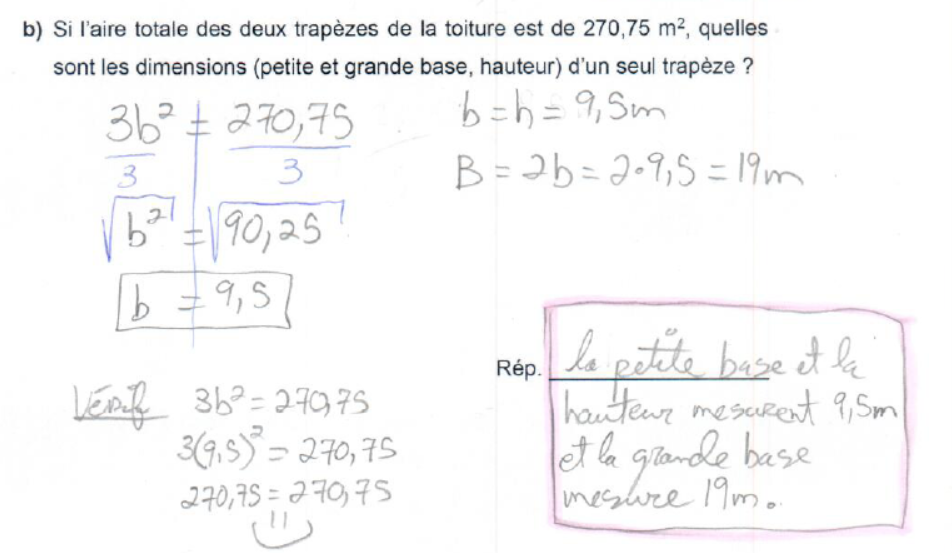 b) Si l'aire totale des deux trapèzes de la toiture est de 270,75 m², quelles
sont les dimensions (petite et grande base, hauteur) d'un seul trapèze ?
3b² = 270,75
3 3
√b² = √90,25
b = 9,5
b = h = 9,5m
B = 2b = 2•9,5 = 19m
Vérif 3b² = 270,75
3(9,5)² = 270,75
270,75 = 270,75
Rép. la petite base et la
hauteur mesurent 9,5m
et la grande base
mesure 19m.